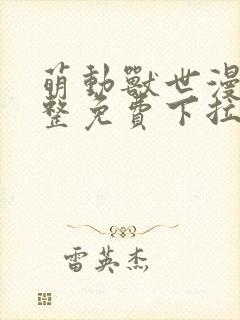 萌動獸世漫
整免費下拉
雷英杰